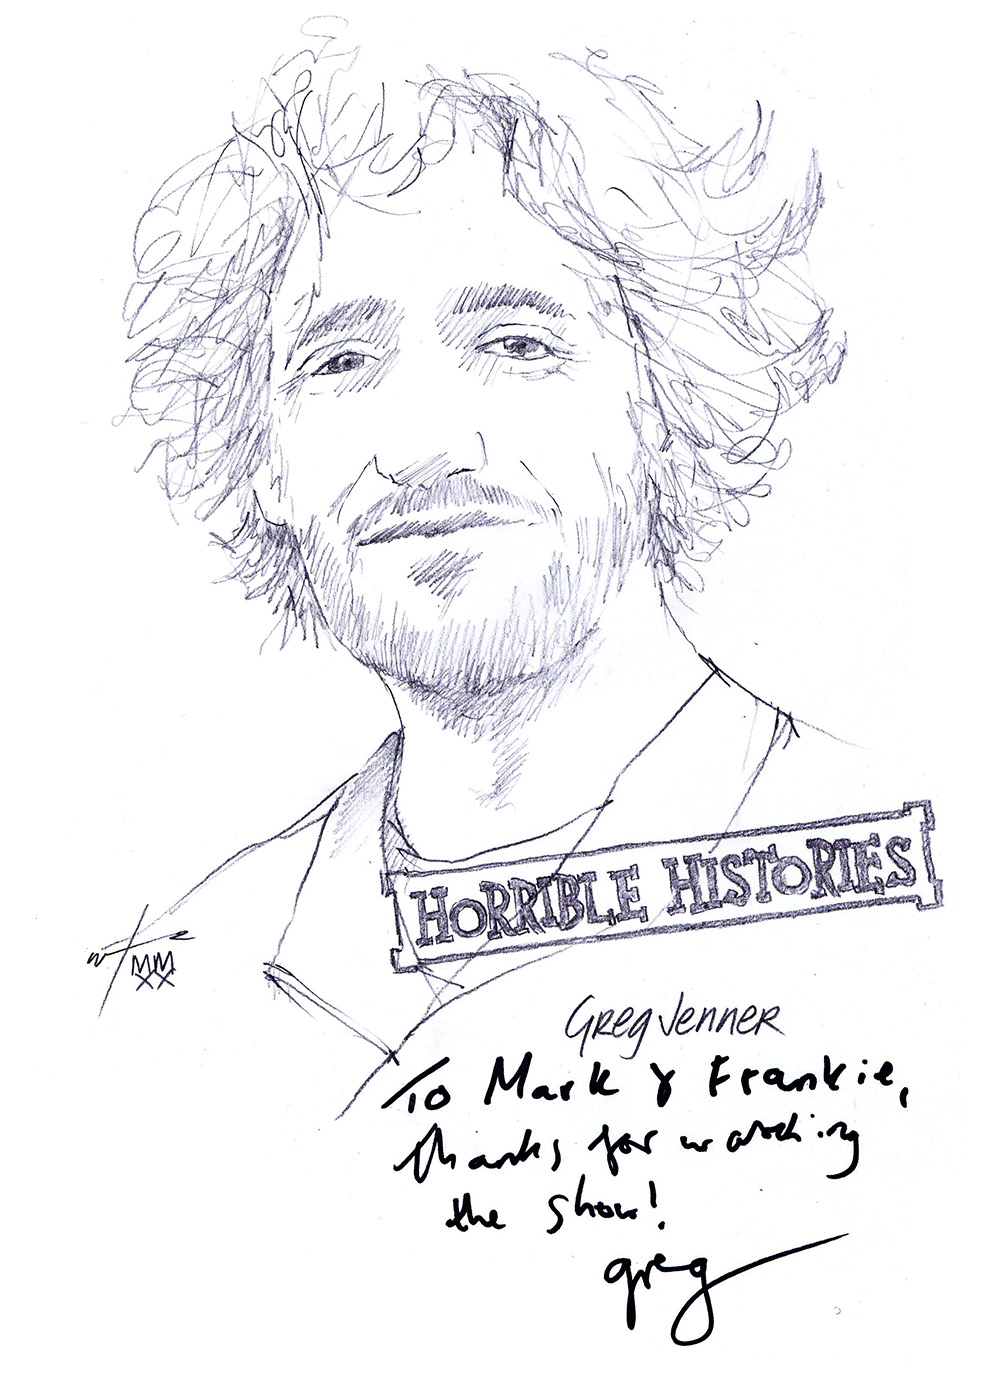 HORRIBLE HISTORIES
MM
XX
Greg Jenner
To Mark & Frankie,
thanks for watching
the show!
greg